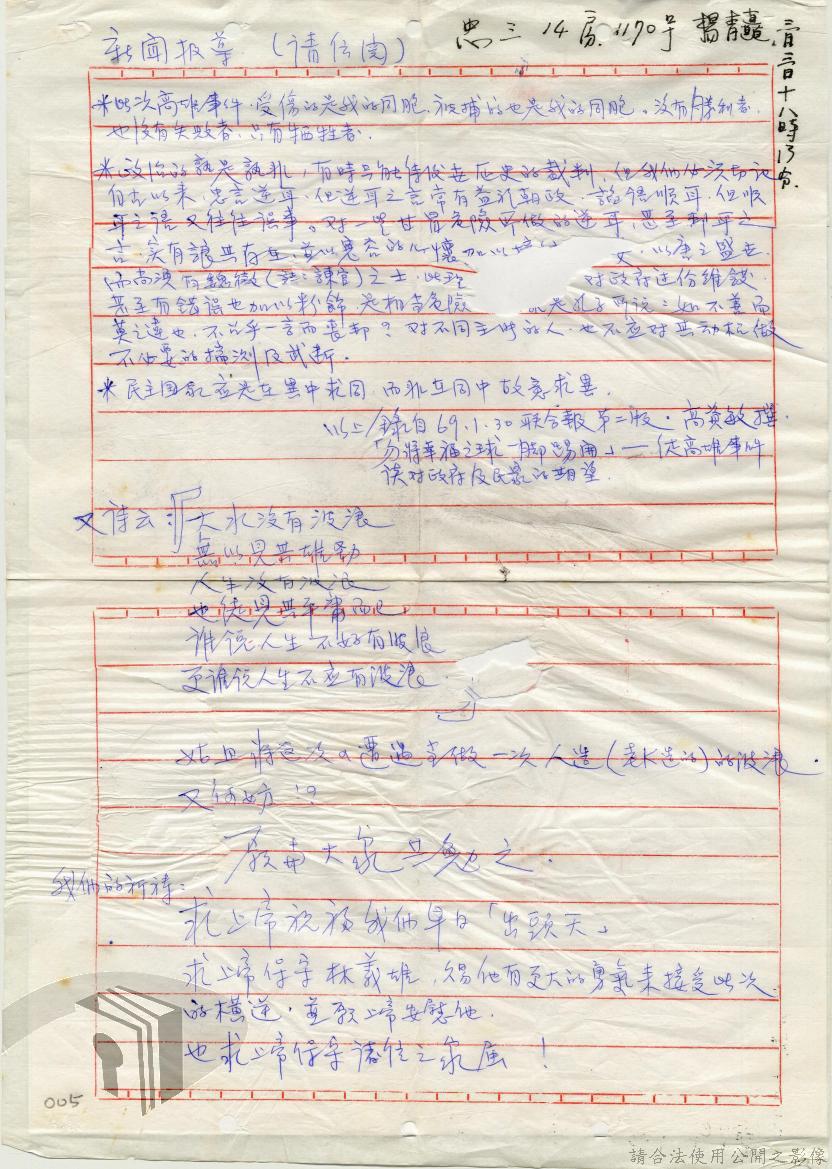 新闻报导 (请传阅)
忠三 14房 1170号 楊青矗
三月三日十八時15分
*此次高雄事件,受傷的是我的同胞,被捕的也是我的同胞。没有勝利者,
也没有失敗者,只有牺牲者。
*政治的孰是孰非,有時只能待役於歷史的裁判,但我們必須切記
自古以來,忠言逆耳,但逆耳之言常有益於朝政,諂語順耳,但順
耳之語又往往誤事。对一些甘冒危險所做的逆耳,甚至刺耳之
言,实有讓其存在,並以寬容的心懷加以 又,以唐之盛世
而尚須有魏徵( 諫官)之士,此 对政府过份維護,
甚至有錯误也加以粉飾,是相当危險 是孔子所说:如不善而
莫之違也,不几乎一言而丧邦?对不同主張的人,也不应对其动机做
不必要的揣测及武断。
*民主国家应是在異中求同,而非在同中故意求異。
以上/錄自69.1.30联合報第二版,高英敏撰
「勿將幸福之球一脚踢開」——從高雄事件
谈对政府及民衆的期望
又诗云:「大水没有波浪
無以見其雄勁
人生没有波浪
也徒見其平常而已
谁說人生不好有波浪
更谁說人生不应有波浪
姑且將這次的遭遇当做一次人造(老K造的)的波浪。
又何妨!?
愿與大家共勉之。
我們的祈禱:
求上帝祝福我們早日「出頭天」
求上帝保守林義雄,賜他有更大的勇氣來接受此次
的横逆,並愿上帝安慰他。
也求上帝保守諸位之家屬!
005
請合法使用公開之影像